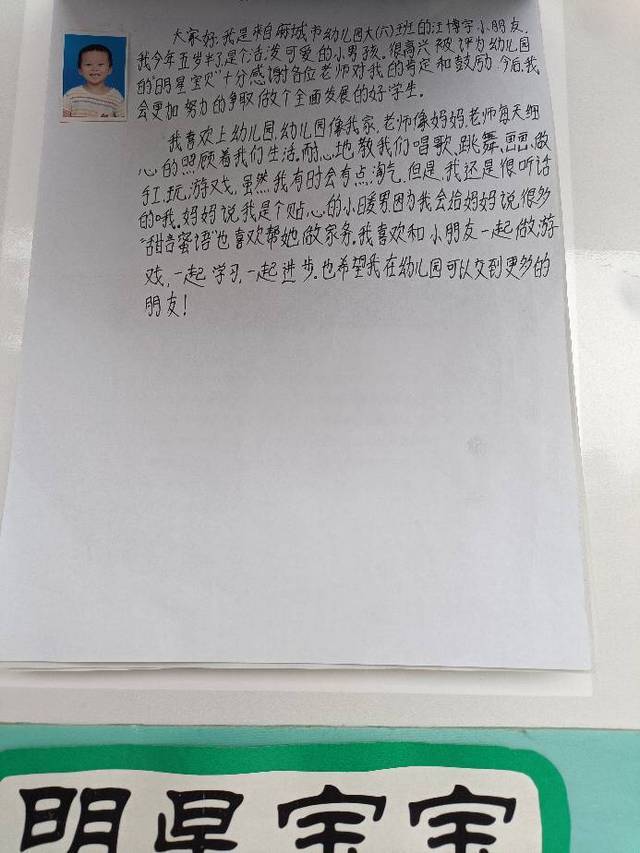 大家好,我是来自麻城市幼儿园大(六)班的汪博宇小朋友.
我今年五岁半了,是个活泼可爱的小男孩。很高兴被评为幼儿园
的“明星宝贝”十分感谢各位老师对我的肯定和鼓励.今后,我
会更加努力的争取做个全面发展的好学生.
我喜欢上幼儿园,幼儿园像我家,老师像妈妈,老师每天细
心的照顾着我们生活,耐心地教我们唱歌、跳舞、画画、做
手工、玩游戏,虽然,我有时会有点淘气,但是,我还是很听话
的哦.妈妈说我是个贴心的小暖男,因为我会给妈妈说很多
“甜言蜜语”也喜欢帮她做家务.我喜欢和小朋友一起做游
戏,一起学习,一起进步.也希望我在幼儿园可以交到更多的
朋友!
明星宝宝